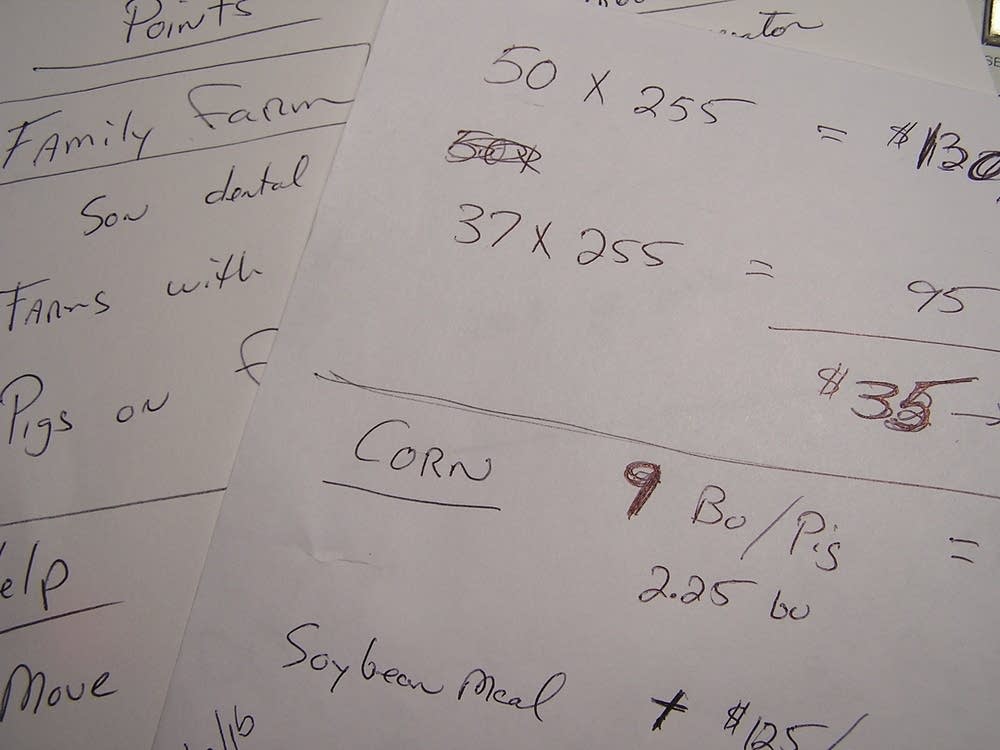 Points
Family Farm
Son dental
Farms with
Pigs on
elp
Move
/lb
50 X 255 = $130
37 X 255 = 95
$35 →
CORN 9 Bu/Pig =
2.25 bu
Soybean Meal + $125/